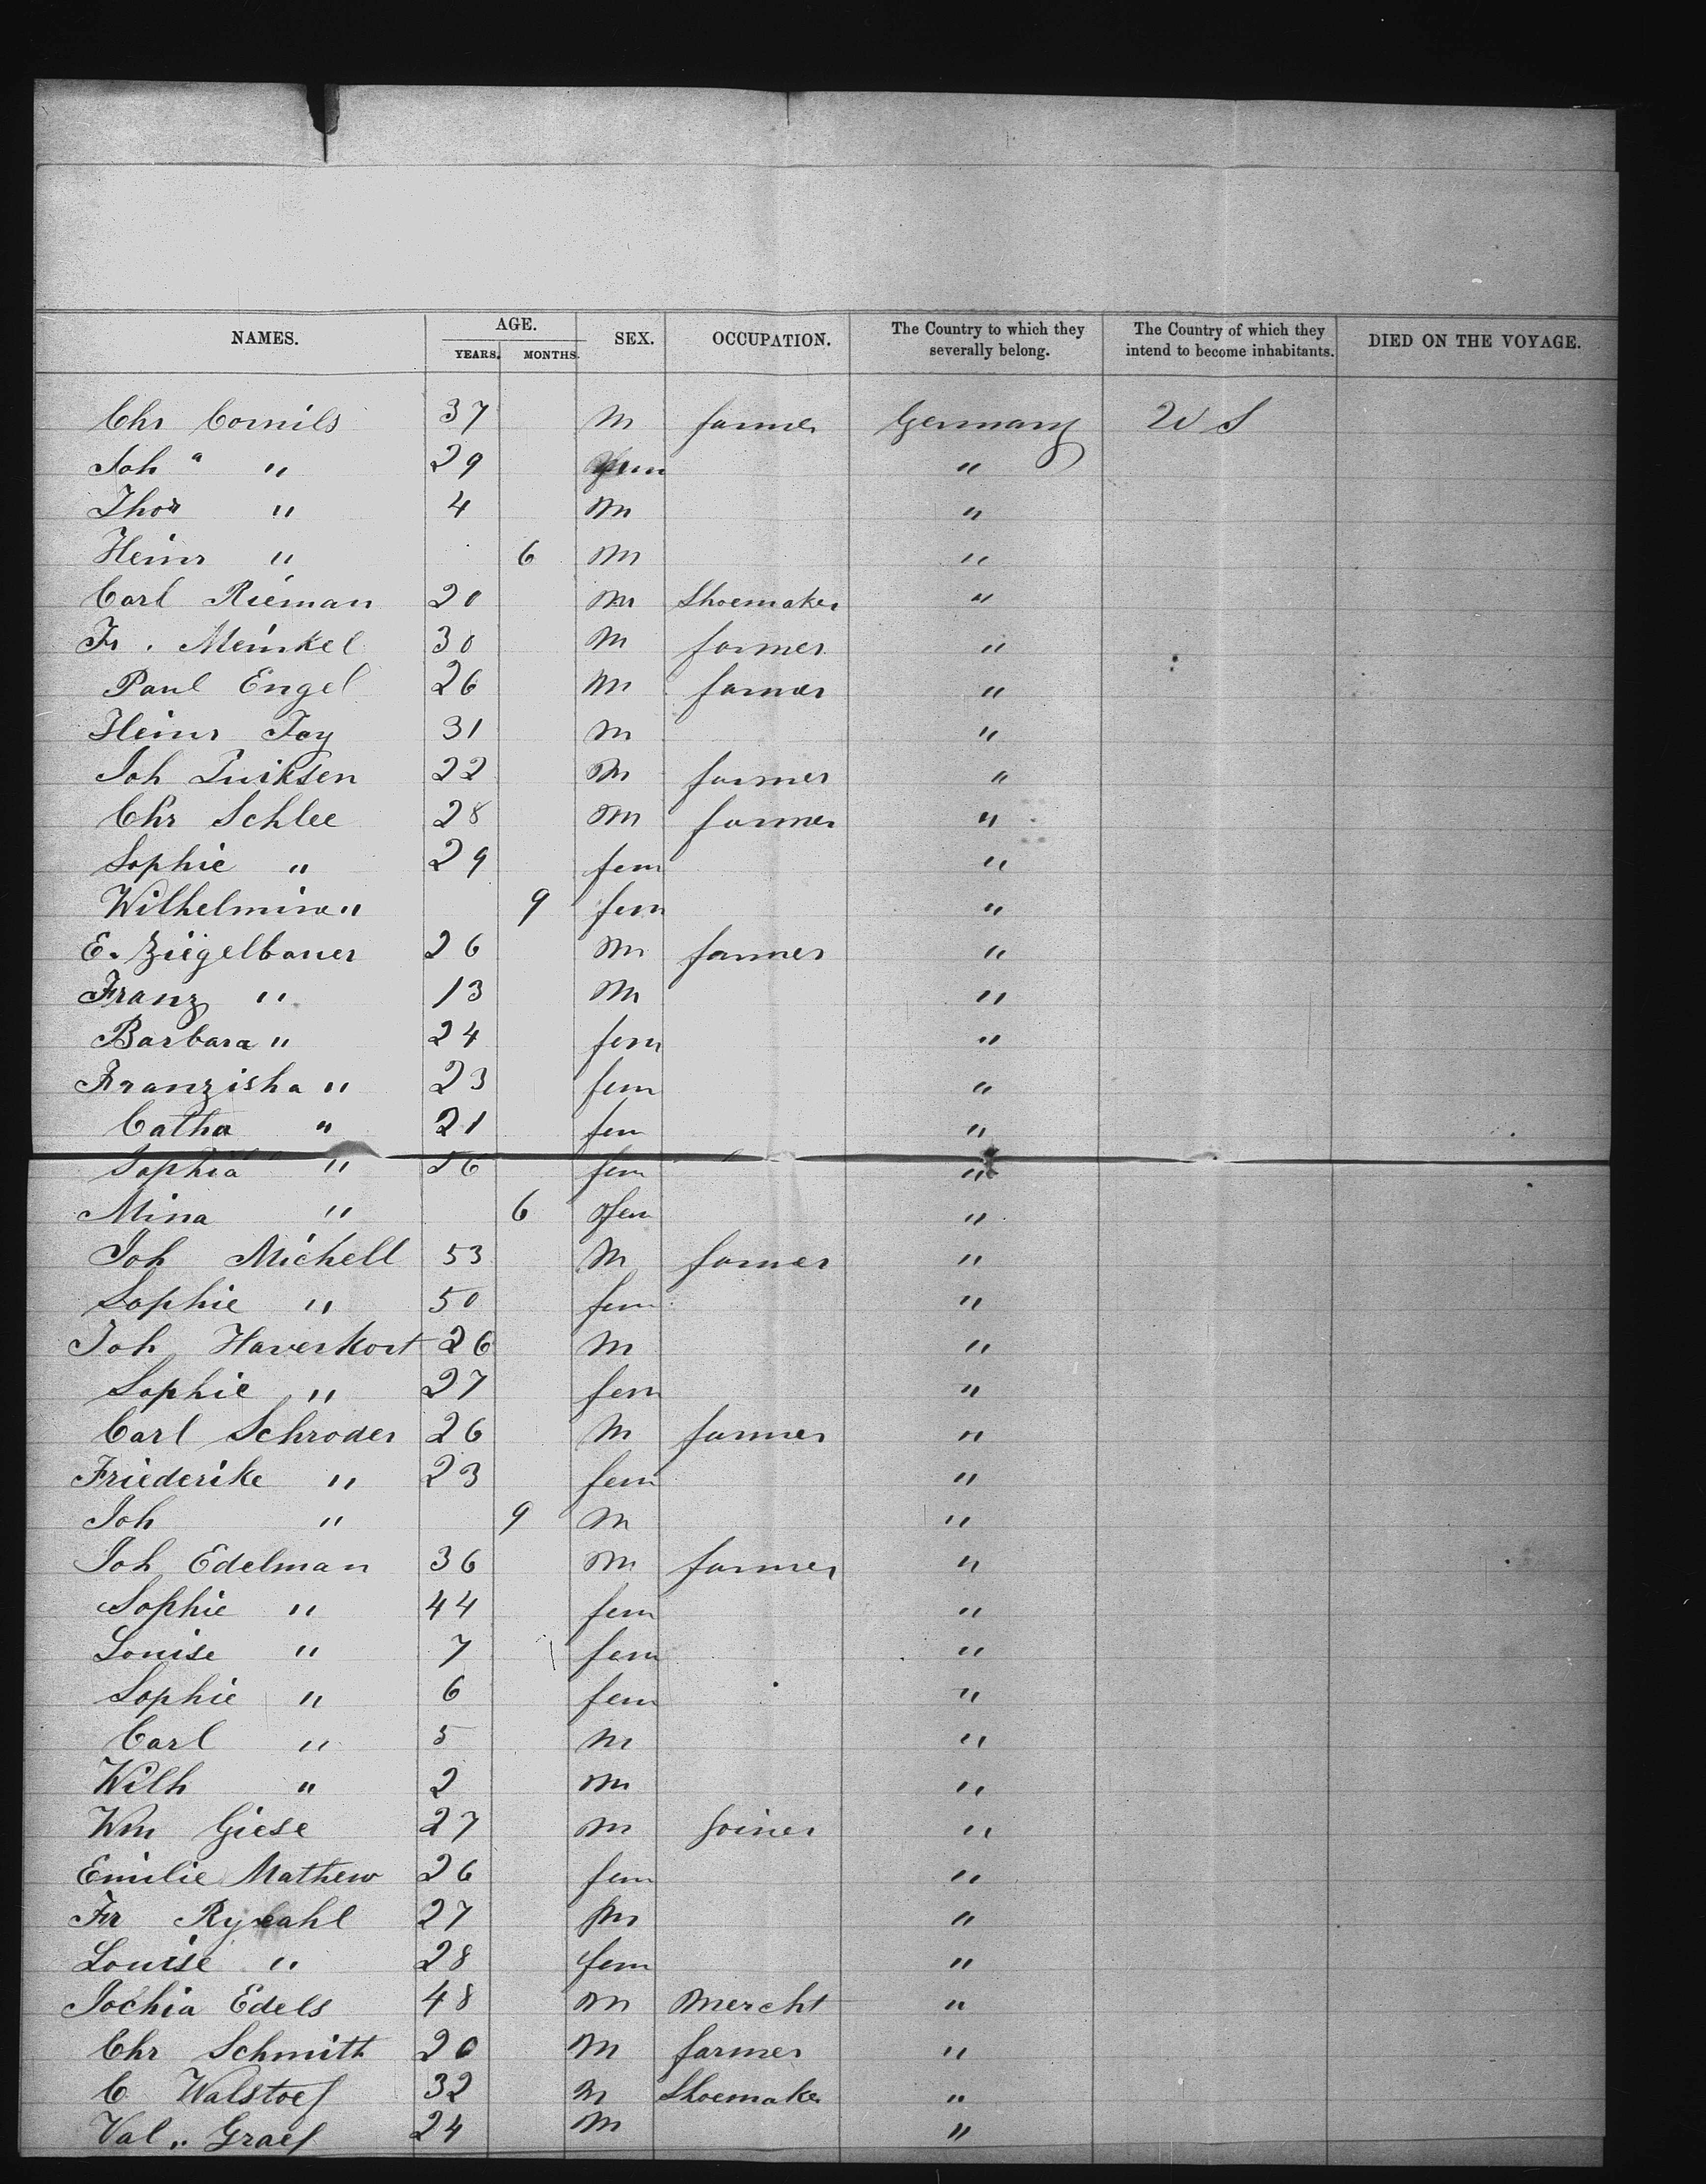 NAMES. AGE. YEARS. MONTHS. SEX. OCCUPATION. The Country to which they severally belong. The Country of which they intend to become inhabitants. DIED ON THE VOYAGE.
Chr Cornils 37 M farmer Germany U S
Joh a " 29 fem "
Thos " 4 M "
Heinr " 6 M "
Carl Rieman 20 M Shoemaker "
Fr. Meinkel 30 M farmer "
Paul Engel 26 M farmer "
Heinr Joy 31 M "
Joh 22 M farmer "
Chr Schlee 28 M farmer "
Sophie " 29 fem "
Wilhelmine " 9 fem "
E. Ziegelbauer 26 M farmer "
Franz " 13 M "
Barbara " 24 fem "
Franziska " 23 fem "
Catha " 21 fem "
Sophia " 56 fem "
Mina " 6 fem "
Joh Michell 53 M farmer "
Sophie " 50 fem "
Joh Haverkort 26 M "
Sophie " 27 fem "
Carl Schroder 26 M farmer "
Friederike " 23 fem "
Joh " 9 M "
Joh Edelman 36 M farmer "
Sophie " 44 fem "
Louise " 7 fem "
Sophie " 6 fem "
Carl " 5 M "
Wilh " 2 M "
Wm Giese 27 M Joiner "
Emilie Mathew 26 fem "
Fr 27 M "
Louise " 28 fem "
Jochia Edels 48 M Mercht "
Chr Schmitt 20 M farmer "
C Walstoef 32 M Shoemaker "
Val.. Graef 24 M "